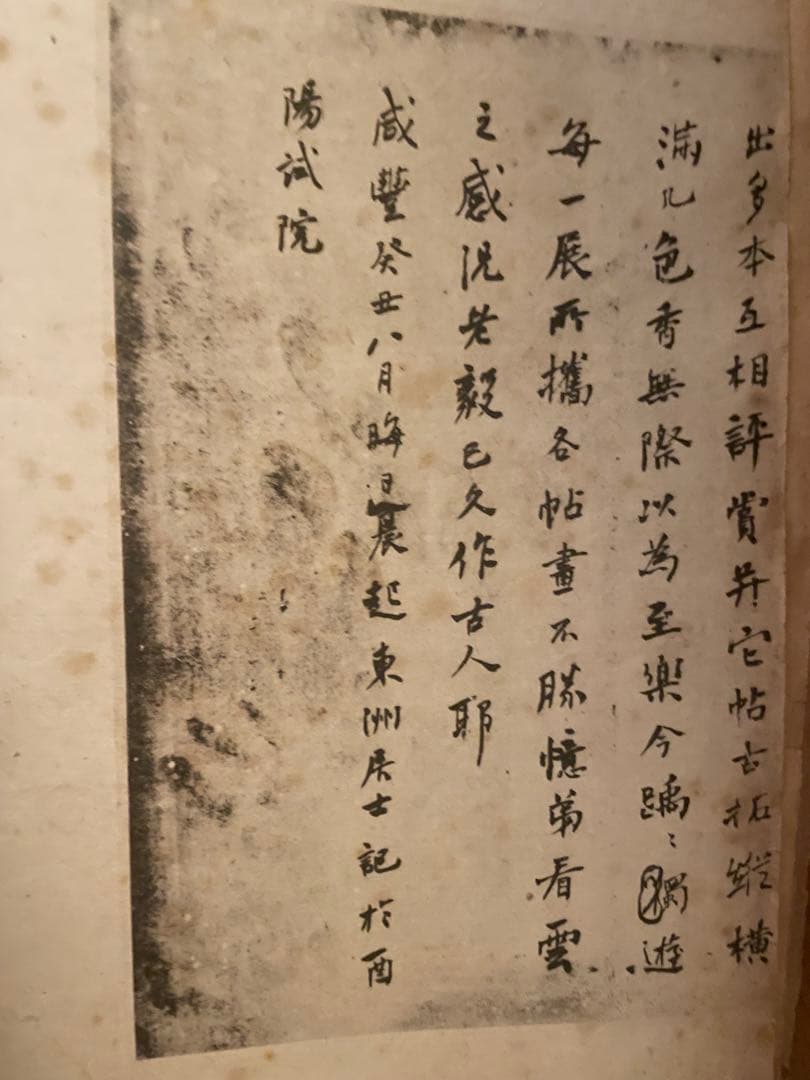 出多本互相評賞并它帖古拓縱橫
滿几色香無際以為至樂今踽〻獨遊
每一展所攜各帖畫不勝憶弟看雲
之感況老毅已久作古人耶
咸豐癸丑八月晦日晨起東洲居士記於酉
陽試院